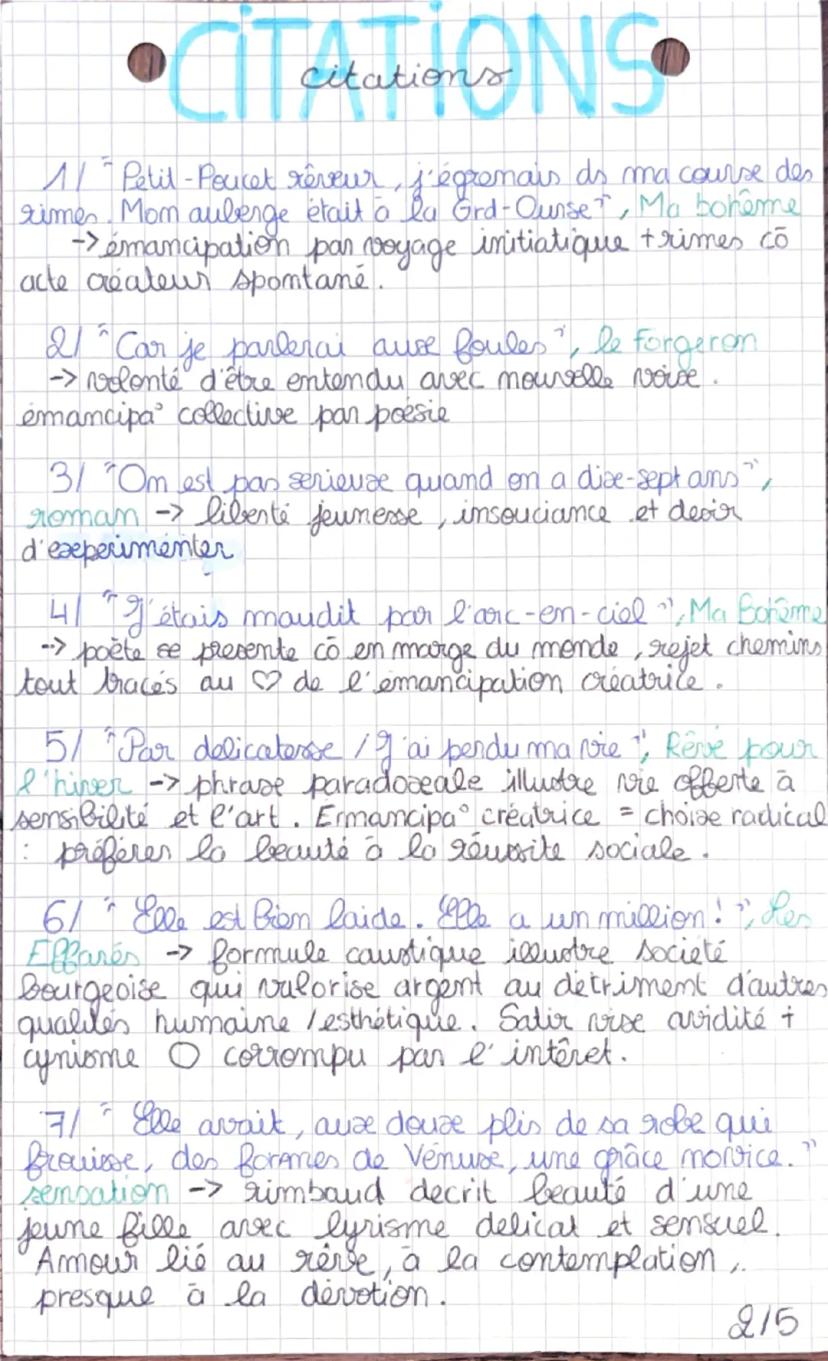 CITATIONS
citations
1/ "Petit-Poucet rêveur, j'égrenais ds ma course des
rimes. Mon auberge était à la Grd-Ourse", Ma bohême
-> émancipation par voyage initiatique + rimes cō
acte créateur spontané.
2/ "Car je parlerai aux foules", le Forgeron
-> volonté d'être entendu avec nouvelle voix.
émancipa° collective par poésie
3/ "On est pas serieux quand on a dix-sept ans",
roman -> liberté jeunesse, insouciance et desir
d'experimenter
4/ "J'étais maudit par l'arc-en-ciel", Ma Bohême
-> poète se presente cō en marge du monde, rejet chemins
tout tracés au ♡ de l'émancipation créatrice.
5/ "Par delicatesse / J'ai perdu ma vie", Rêvé pour
l'hiver -> phrase paradoxale illustre vie offerte à
sensibilité et l'art. Ermancipa° créatrice = choix radical
: préférer la beauté à la réussite sociale.
6/ "Elle est bien laide. Elle a un million!", Les
Effarés -> formule caustique illustre société
bourgeoise qui valorise argent au détriment d'autres
qualités humaine / esthétique. Satir vise avidité +
cynisme O corrompu par l'intêret.
7/ "Elle avait, aux doux plis de sa robe qui
frouisse, des formes de Vénus, une grâce novice."
sensation -> rimbaud decrit beauté d'une
jeune fille avec lyrisme delicat et sensuel.
Amour lié au rêve, à la contemplation,
presque à la dévotion.
2/5